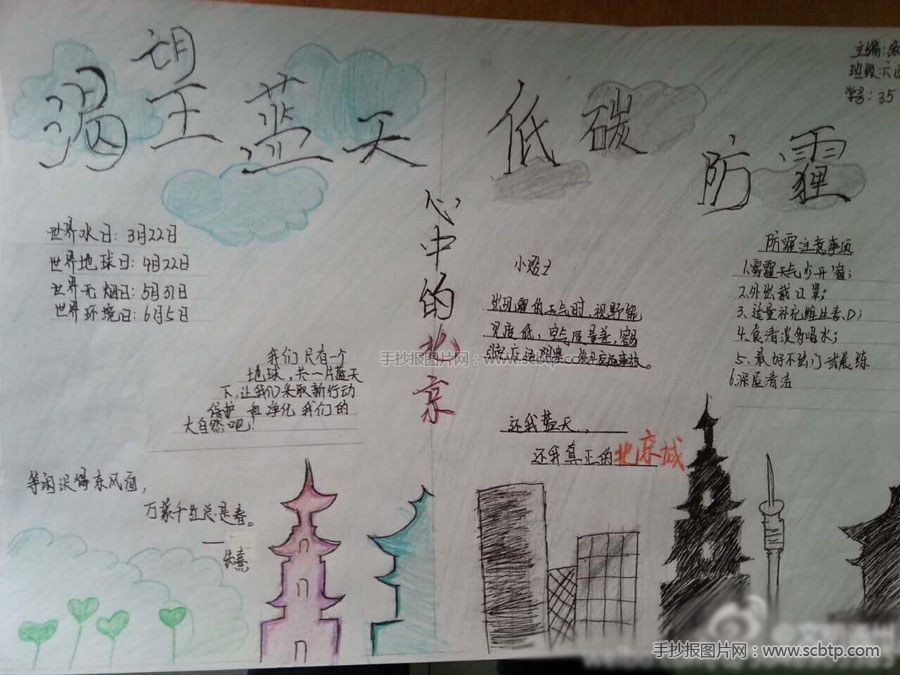 渴望蓝天
低碳
防霾
主编:
班级:六
学号:35
心中的北京
世界水日: 3月22日
世界地球日: 4月22日
世界无烟日: 5月31日
世界环境日: 6月5日
我们只有一个
地球,共一片蓝天
下,让我们采取新行动
保护 和净化 我们的
大自然吧!
等闲识得东风面,
万紫千红总是春。
——朱熹
小贴士
出现霾的天气时,视野能
见度低,空气质量差,容易
手抄报图片网:www.scbtp.com
还我蓝天,
还我真正的北京城
防霾注意事项
1.雾霾天气少开窗;
2.外出戴口罩;
3.适量补充维生素D;
4.食清淡多喝水;
5.最好不出门或晨练
6.深层清洁
手抄报图片网:www.scbtp.com